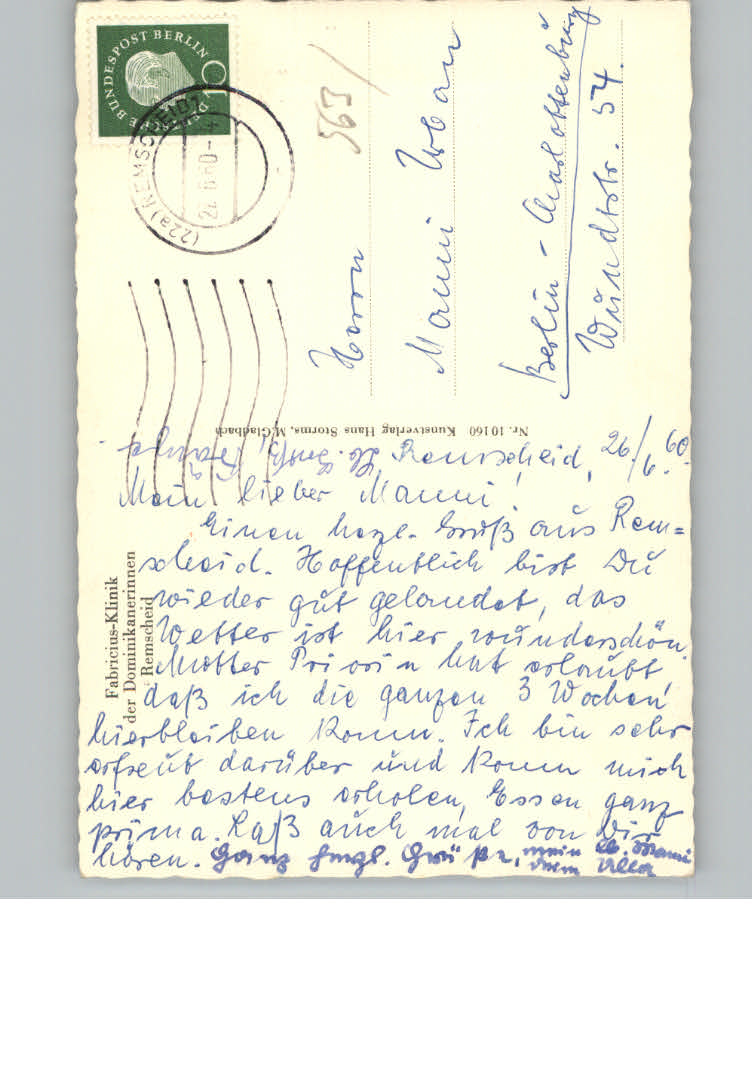 DEUTSCHE BUNDESPOST BERLIN
(22a) REMSCHEID
563/
Herrn
Manni Urban
Berlin - Charlottenburg
Wundtstr. 54.
Nr. 10160 Kunstverlag Hans Storms, M.Gladbach
Fabricius-Klinik
der Dominikanerinnen
Remscheid
Remscheid, 26./6. 60.
Mein lieber Manni
Einen herzl. Gruß aus Rem=
scheid. Hoffentlich bist Du
wieder gut gelandet, das
Wetter ist hier wunderschön.
Mutter Priorin hat erlaubt,
daß ich die ganzen 3 Wochen
hierbleiben kann. Ich bin sehr
erfreut darüber und kann mich
hier bestens erholen, Essen ganz
prima. Laß auch mal von Dir
hören. Ganz herzl. Grüße, mein lb. Manni
Dein Ulla